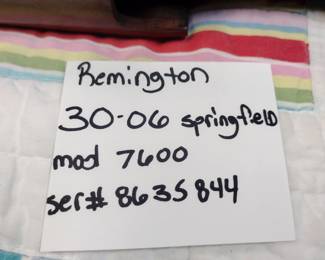 Remington
30-06 springfielD
mod 7600
ser# 8635844